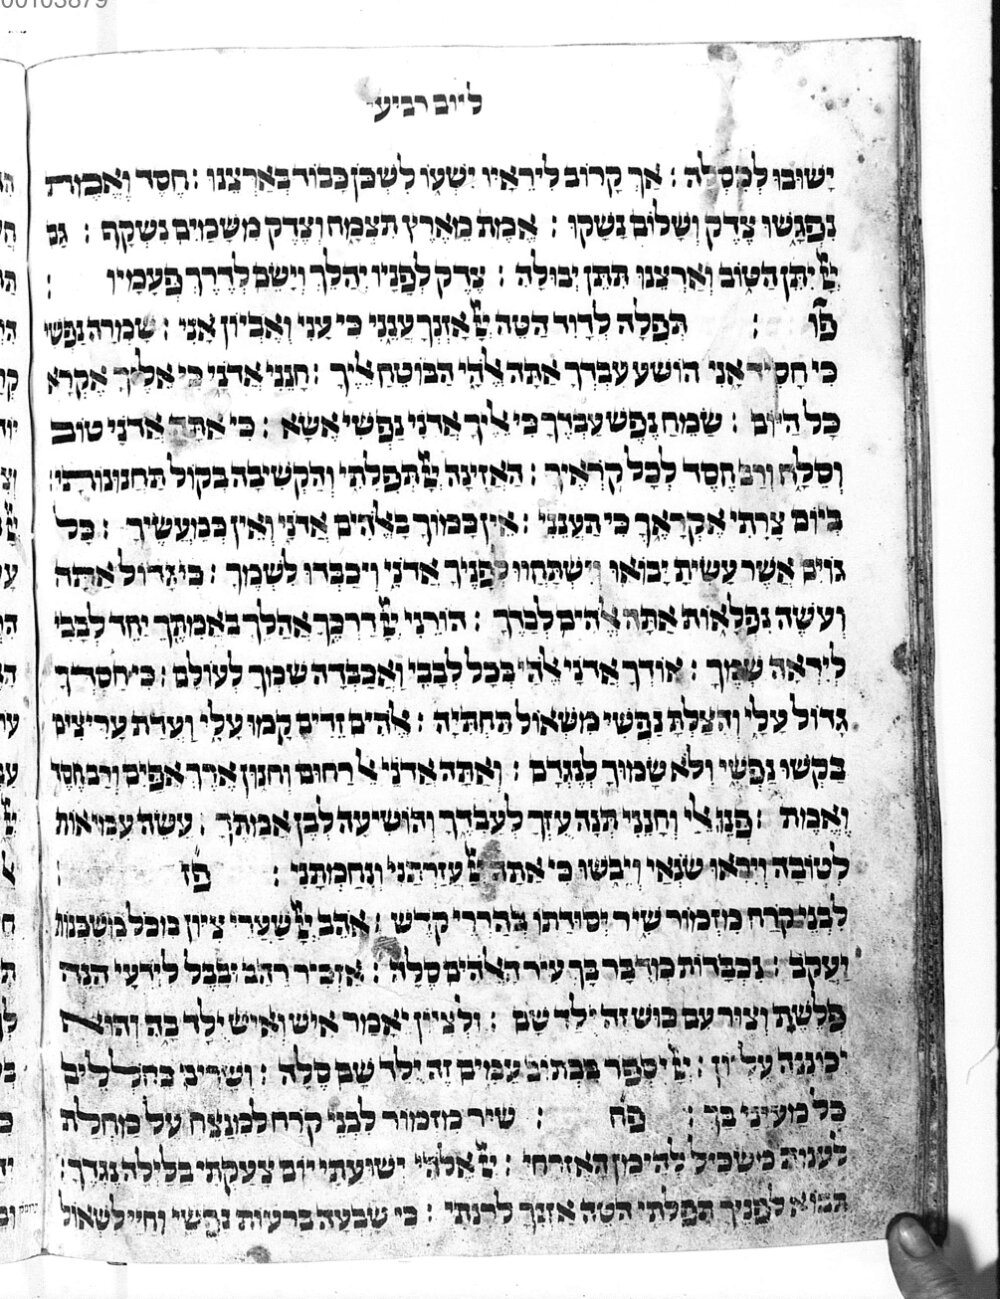 00103879
ליום רביעי
יָשׁוּבוּ לְכִסְלָה : אַךְ קָרוֹב לִירֵאָיו יִשְׁעוֹ לִשְׁכֹּן כָּבוֹד בְּאַרְצֵנוּ : חֶסֶד וֶאֱמֶת
נִפְגָּשׁוּ צֶדֶק וְשָׁלוֹם נָשָׁקוּ : אֱמֶת מֵאֶרֶץ תִּצְמָח וְצֶדֶק מִשָּׁמַיִם נִשְׁקָף : גַּם
יִתֵּן הַטּוֹב וְאַרְצֵנוּ תִּתֵּן יְבוּלָהּ : צֶדֶק לְפָנָיו יְהַלֵּךְ וְיָשֵׂם לְדֶרֶךְ פְּעָמָיו :
פו : תְּפִלָּה לְדָוִד הַטֵּה אָזְנְךָ עֲנֵנִי כִּי עָנִי וְאֶבְיוֹן אָנִי : שָׁמְרָה נַפְשִׁי
כִּי חָסִיד אָנִי הוֹשַׁע עַבְדְּךָ אַתָּה אֱלֹהַי הַבּוֹטֵחַ אֵלֶיךָ : חָנֵּנִי אֲדֹנָי כִּי אֵלֶיךָ אֶקְרָא
כָּל הַיּוֹם : שַׂמֵּחַ נֶפֶשׁ עַבְדֶּךָ כִּי אֵלֶיךָ אֲדֹנָי נַפְשִׁי אֶשָּׂא : כִּי אַתָּה אֲדֹנָי טוֹב
וְסַלָּח וְרַב חֶסֶד לְכָל קֹרְאֶיךָ : הַאֲזִינָה תְּפִלָּתִי וְהַקְשִׁיבָה בְּקוֹל תַּחֲנוּנוֹתָי :
בְּיוֹם צָרָתִי אֶקְרָאֶךָּ כִּי תַעֲנֵנִי : אֵין כָּמוֹךָ בָאֱלֹהִים אֲדֹנָי וְאֵין כְּמַעֲשֶׂיךָ : כָּל
גּוֹיִם אֲשֶׁר עָשִׂיתָ יָבוֹאוּ וְיִשְׁתַּחֲווּ לְפָנֶיךָ אֲדֹנָי וִיכַבְּדוּ לִשְׁמֶךָ : כִּי גָדוֹל אַתָּה
וְעֹשֵׂה נִפְלָאוֹת אַתָּה אֱלֹהִים לְבַדֶּךָ : הוֹרֵנִי דַּרְכֶּךָ אֲהַלֵּךְ בַּאֲמִתֶּךָ יַחֵד לְבָבִי
לְיִרְאָה שְׁמֶךָ : אוֹדְךָ אֲדֹנָי אֱלֹהַי בְּכָל לְבָבִי וַאֲכַבְּדָה שִׁמְךָ לְעוֹלָם : כִּי חַסְדְּךָ
גָּדוֹל עָלָי וְהִצַּלְתָּ נַפְשִׁי מִשְּׁאוֹל תַּחְתִּיָּה : אֱלֹהִים זֵדִים קָמוּ עָלַי וַעֲדַת עָרִיצִים
בִּקְשׁוּ נַפְשִׁי וְלֹא שָׂמוּךָ לְנֶגְדָּם : וְאַתָּה אֲדֹנָי אל רַחוּם וְחַנּוּן אֶרֶךְ אַפַּיִם וְרַב חֶסֶד
וֶאֱמֶת : פְּנֵה אֵלַי וְחָנֵּנִי תְּנָה עֻזְּךָ לְעַבְדֶּךָ וְהוֹשִׁיעָה לְבֶן אֲמָתֶךָ : עֲשֵׂה עִמִּי אוֹת
לְטוֹבָה וְיִרְאוּ שֹׂנְאַי וְיֵבֹשׁוּ כִּי אַתָּה עֲזַרְתַּנִי וְנִחַמְתָּנִי : פז :
לִבְנֵי קֹרַח מִזְמוֹר שִׁיר יְסוּדָתוֹ בְּהַרְרֵי קֹדֶשׁ : אֹהֵב שַׁעֲרֵי צִיּוֹן מִכֹּל מִשְׁכְּנוֹת
יַעֲקֹב : נִכְבָּדוֹת מְדֻבָּר בָּךְ עִיר הָאֱלֹהִים סֶלָה : אַזְכִּיר רַהַב וּבָבֶל לְיֹדְעָי הִנֵּה
פְלֶשֶׁת וְצוֹר עִם כּוּשׁ זֶה יֻלַּד שָׁם : וּלְצִיּוֹן יֵאָמַר אִישׁ וְאִישׁ יֻלַּד בָּהּ וְהוּא
יְכוֹנְנֶהָ עֶלְיוֹן : יִסְפֹּר בִּכְתוֹב עַמִּים זֶה יֻלַּד שָׁם סֶלָה : וְשָׁרִים כְּחֹלְלִים
כָּל מַעְיָנַי בָּךְ : פח : שִׁיר מִזְמוֹר לִבְנֵי קֹרַח לַמְנַצֵּחַ עַל מַחֲלַת
לְעַנּוֹת מַשְׂכִּיל לְהֵימָן הָאֶזְרָחִי : אֱלֹהֵי יְשׁוּעָתִי יוֹם צָעַקְתִּי בַלַּיְלָה נֶגְדֶּךָ :
תָּבוֹא לְפָנֶיךָ תְּפִלָּתִי הַטֵּה אָזְנְךָ לְרִנָּתִי : כִּי שָׂבְעָה בְרָעוֹת נַפְשִׁי וְחַיַּי לִשְׁאוֹל